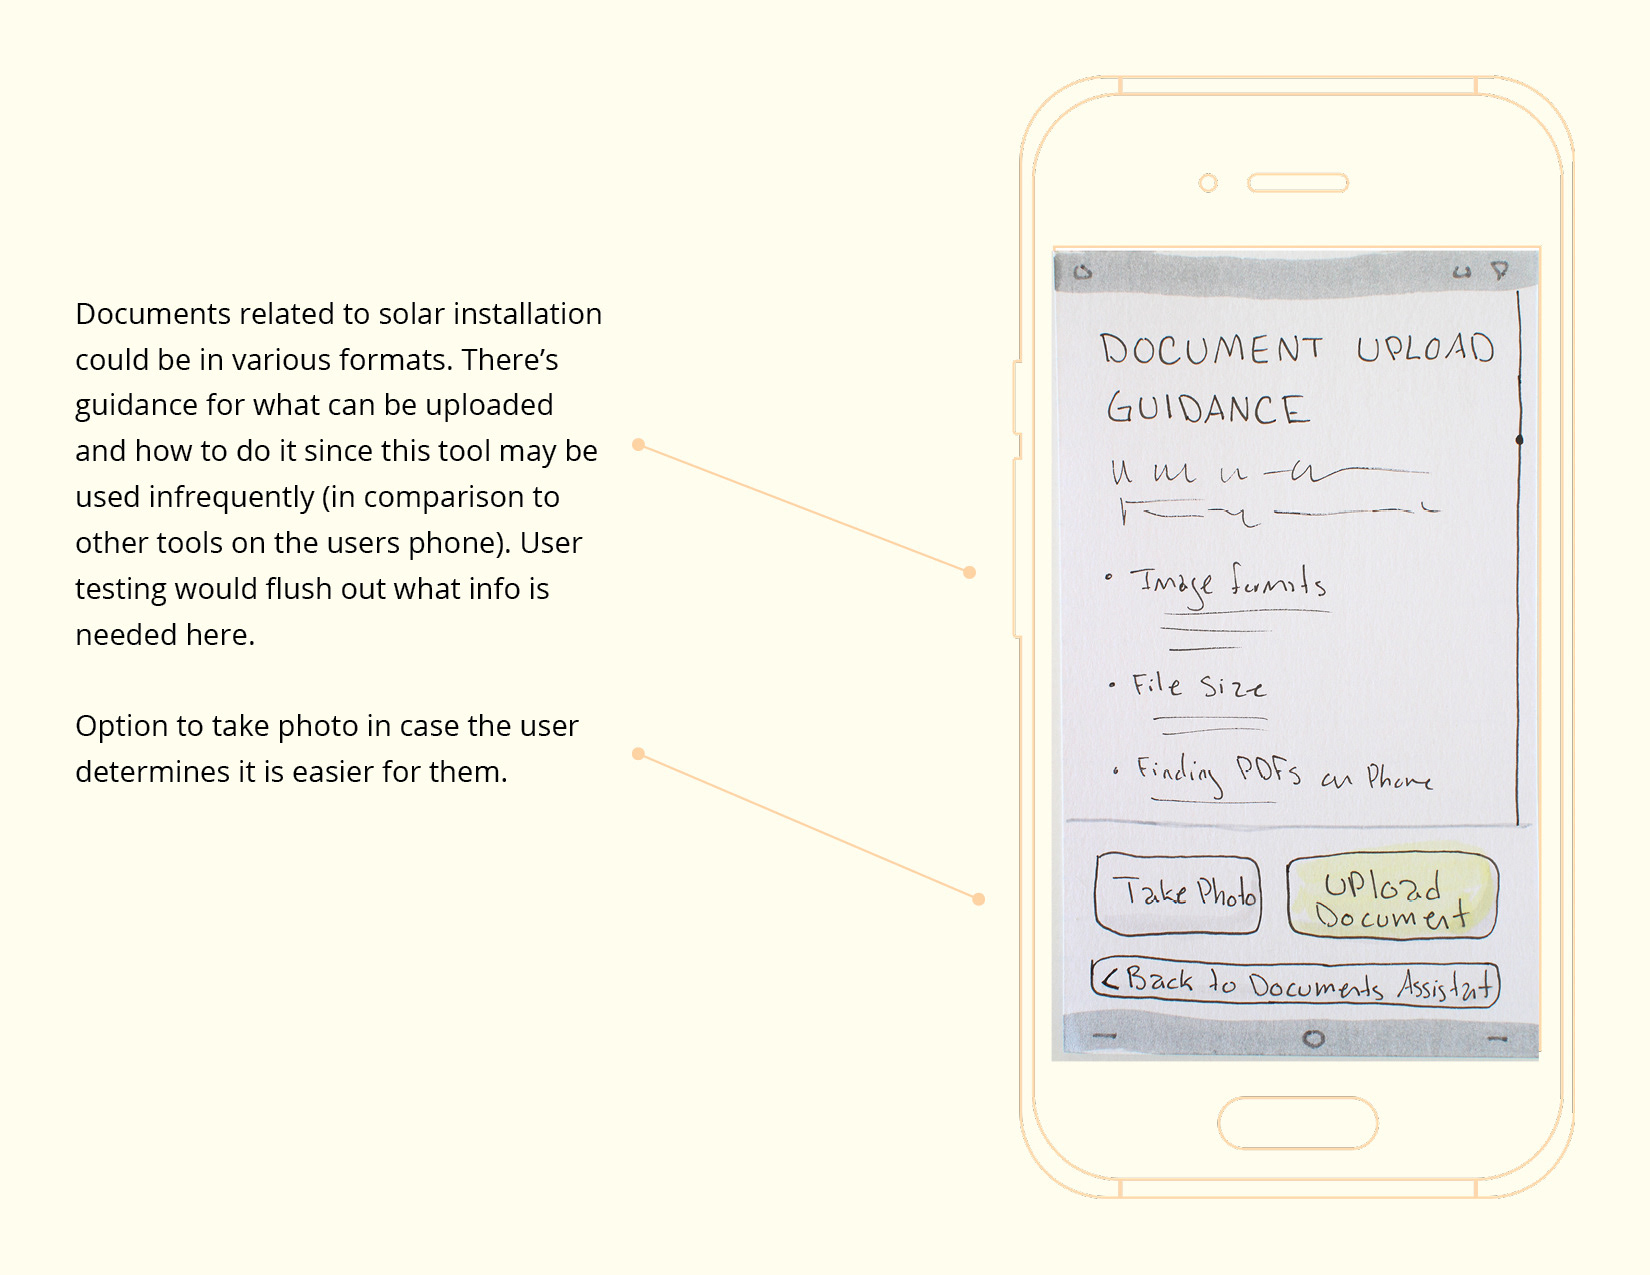 Documents related to solar installation
could be in various formats. There’s
guidance for what can be uploaded
and how to do it since this tool may be
used infrequently (in comparison to
other tools on the users phone). User
testing would flush out what info is
needed here.
Option to take photo in case the user
determines it is easier for them.
DOCUMENT UPLOAD
GUIDANCE
• Image formats
• File Size
• Finding PDFs on Phone
Take Photo
Upload
Document
< Back to Documents Assistant